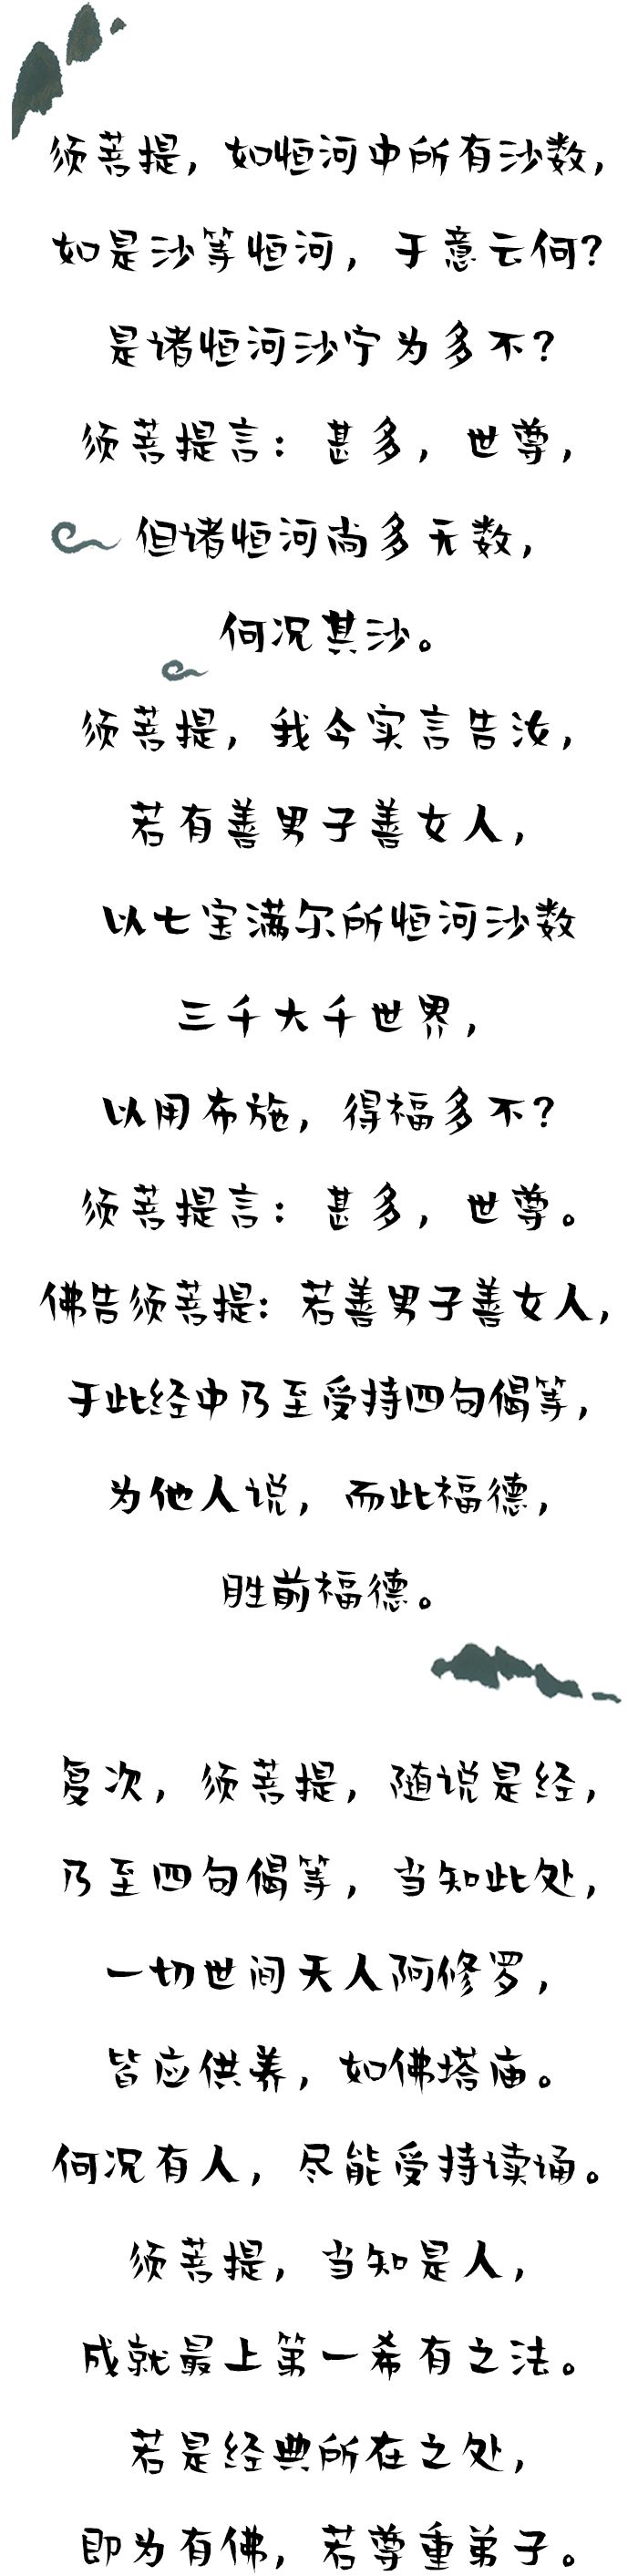 须菩提，如恒河中所有沙数，
如是沙等恒河，于意云何?
是诸恒河沙宁为多不?
须菩提言：甚多，世尊，
但诸恒河尚多无数，
何况其沙。
须菩提，我今实言告汝，
若有善男子善女人，
以七宝满尔所恒河沙数
三千大千世界，
以用布施，得福多不?
须菩提言：甚多，世尊。
佛告须菩提：若善男子善女人，
于此经中乃至受持四句偈等，
为他人说，而此福德，
胜前福德。
复次，须菩提，随说是经，
乃至四句偈等，当知此处，
一切世间天人阿修罗，
皆应供养，如佛塔庙。
何况有人，尽能受持读诵。
须菩提，当知是人，
成就最上第一希有之法。
若是经典所在之处，
即为有佛，若尊重弟子。